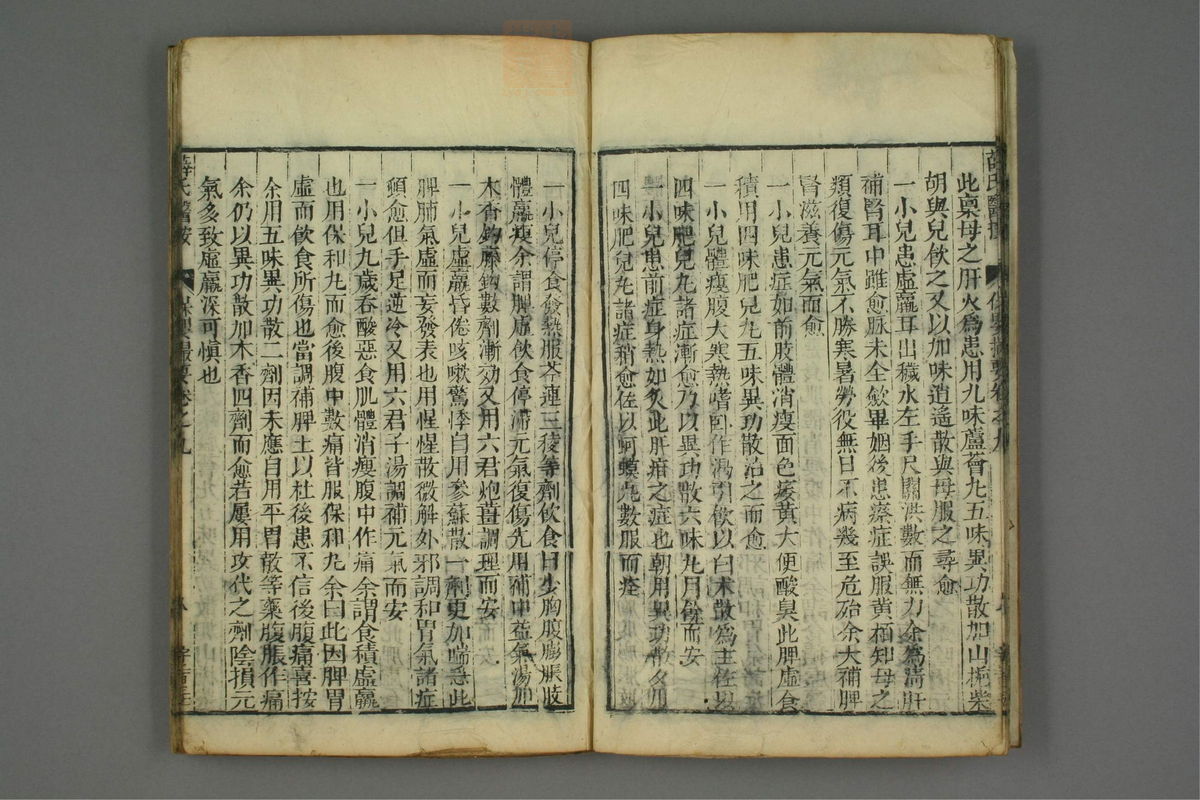 此稟母之肝火為患用九味蘆薈丸五味異功散加山梔柴
胡與兒飲之又以加味逍遙散與母服之尋愈
一小兒患虛羸耳出穢水左手尺關洪數而無力余為清肝
補腎耳中雖愈脈未全斂畢姻後患瘵症誤服黃栢知母之
類復傷元氣不勝寒暑勞役無日不病幾至危殆余大補脾
腎滋養元氣而愈
一小兒患症如前肢體消瘦面色痿黃大便酸臭此脾虛食
積用四味肥兒丸五味異功散治之而愈
一小兒體瘦腹大寒熱嗜臥作渴引飲以白朮散為主佐以
四味肥兒丸諸症漸愈乃以異功散六味丸月餘而安
一小兒患前症身熱如炙此肝疳之症也朝用異功散夕用
四味肥兒丸諸症稍愈佐以蚵蟆丸數服而痊
薛氏醫按
保嬰撮要卷之九
一小兒停食發熱服芩連三稜等劑飲食日少胸腹膨脹肢
體羸瘦余謂脾虛飲食停滯元氣復傷先用補中益氣湯加
木香鈎藤鈎數劑漸効又用六君炮薑調理而安
一小兒虛羸昏倦咳嗽驚悸自用參蘇散一劑更加喘急此
脾肺氣虛而妄發表也用惺惺散微解外邪調和胃氣諸症
頓愈但手足逆冷又用六君子湯調補元氣而安
一小兒九歲吞酸惡食肌體消瘦腹中作痛余謂食積虛羸
也用保和丸而愈後腹中數痛皆服保和丸余曰此因脾胃
虛而飲食所傷也當調補脾土以杜後患不信後腹痛喜按
余用五味異功散二劑因未應自用平胃散等藥腹脹作痛
余仍以異功散加木香四劑而愈若屢用攻伐之劑陰損元
氣多致虛羸深可慎也
薛氏醫按
保嬰撮要卷之九